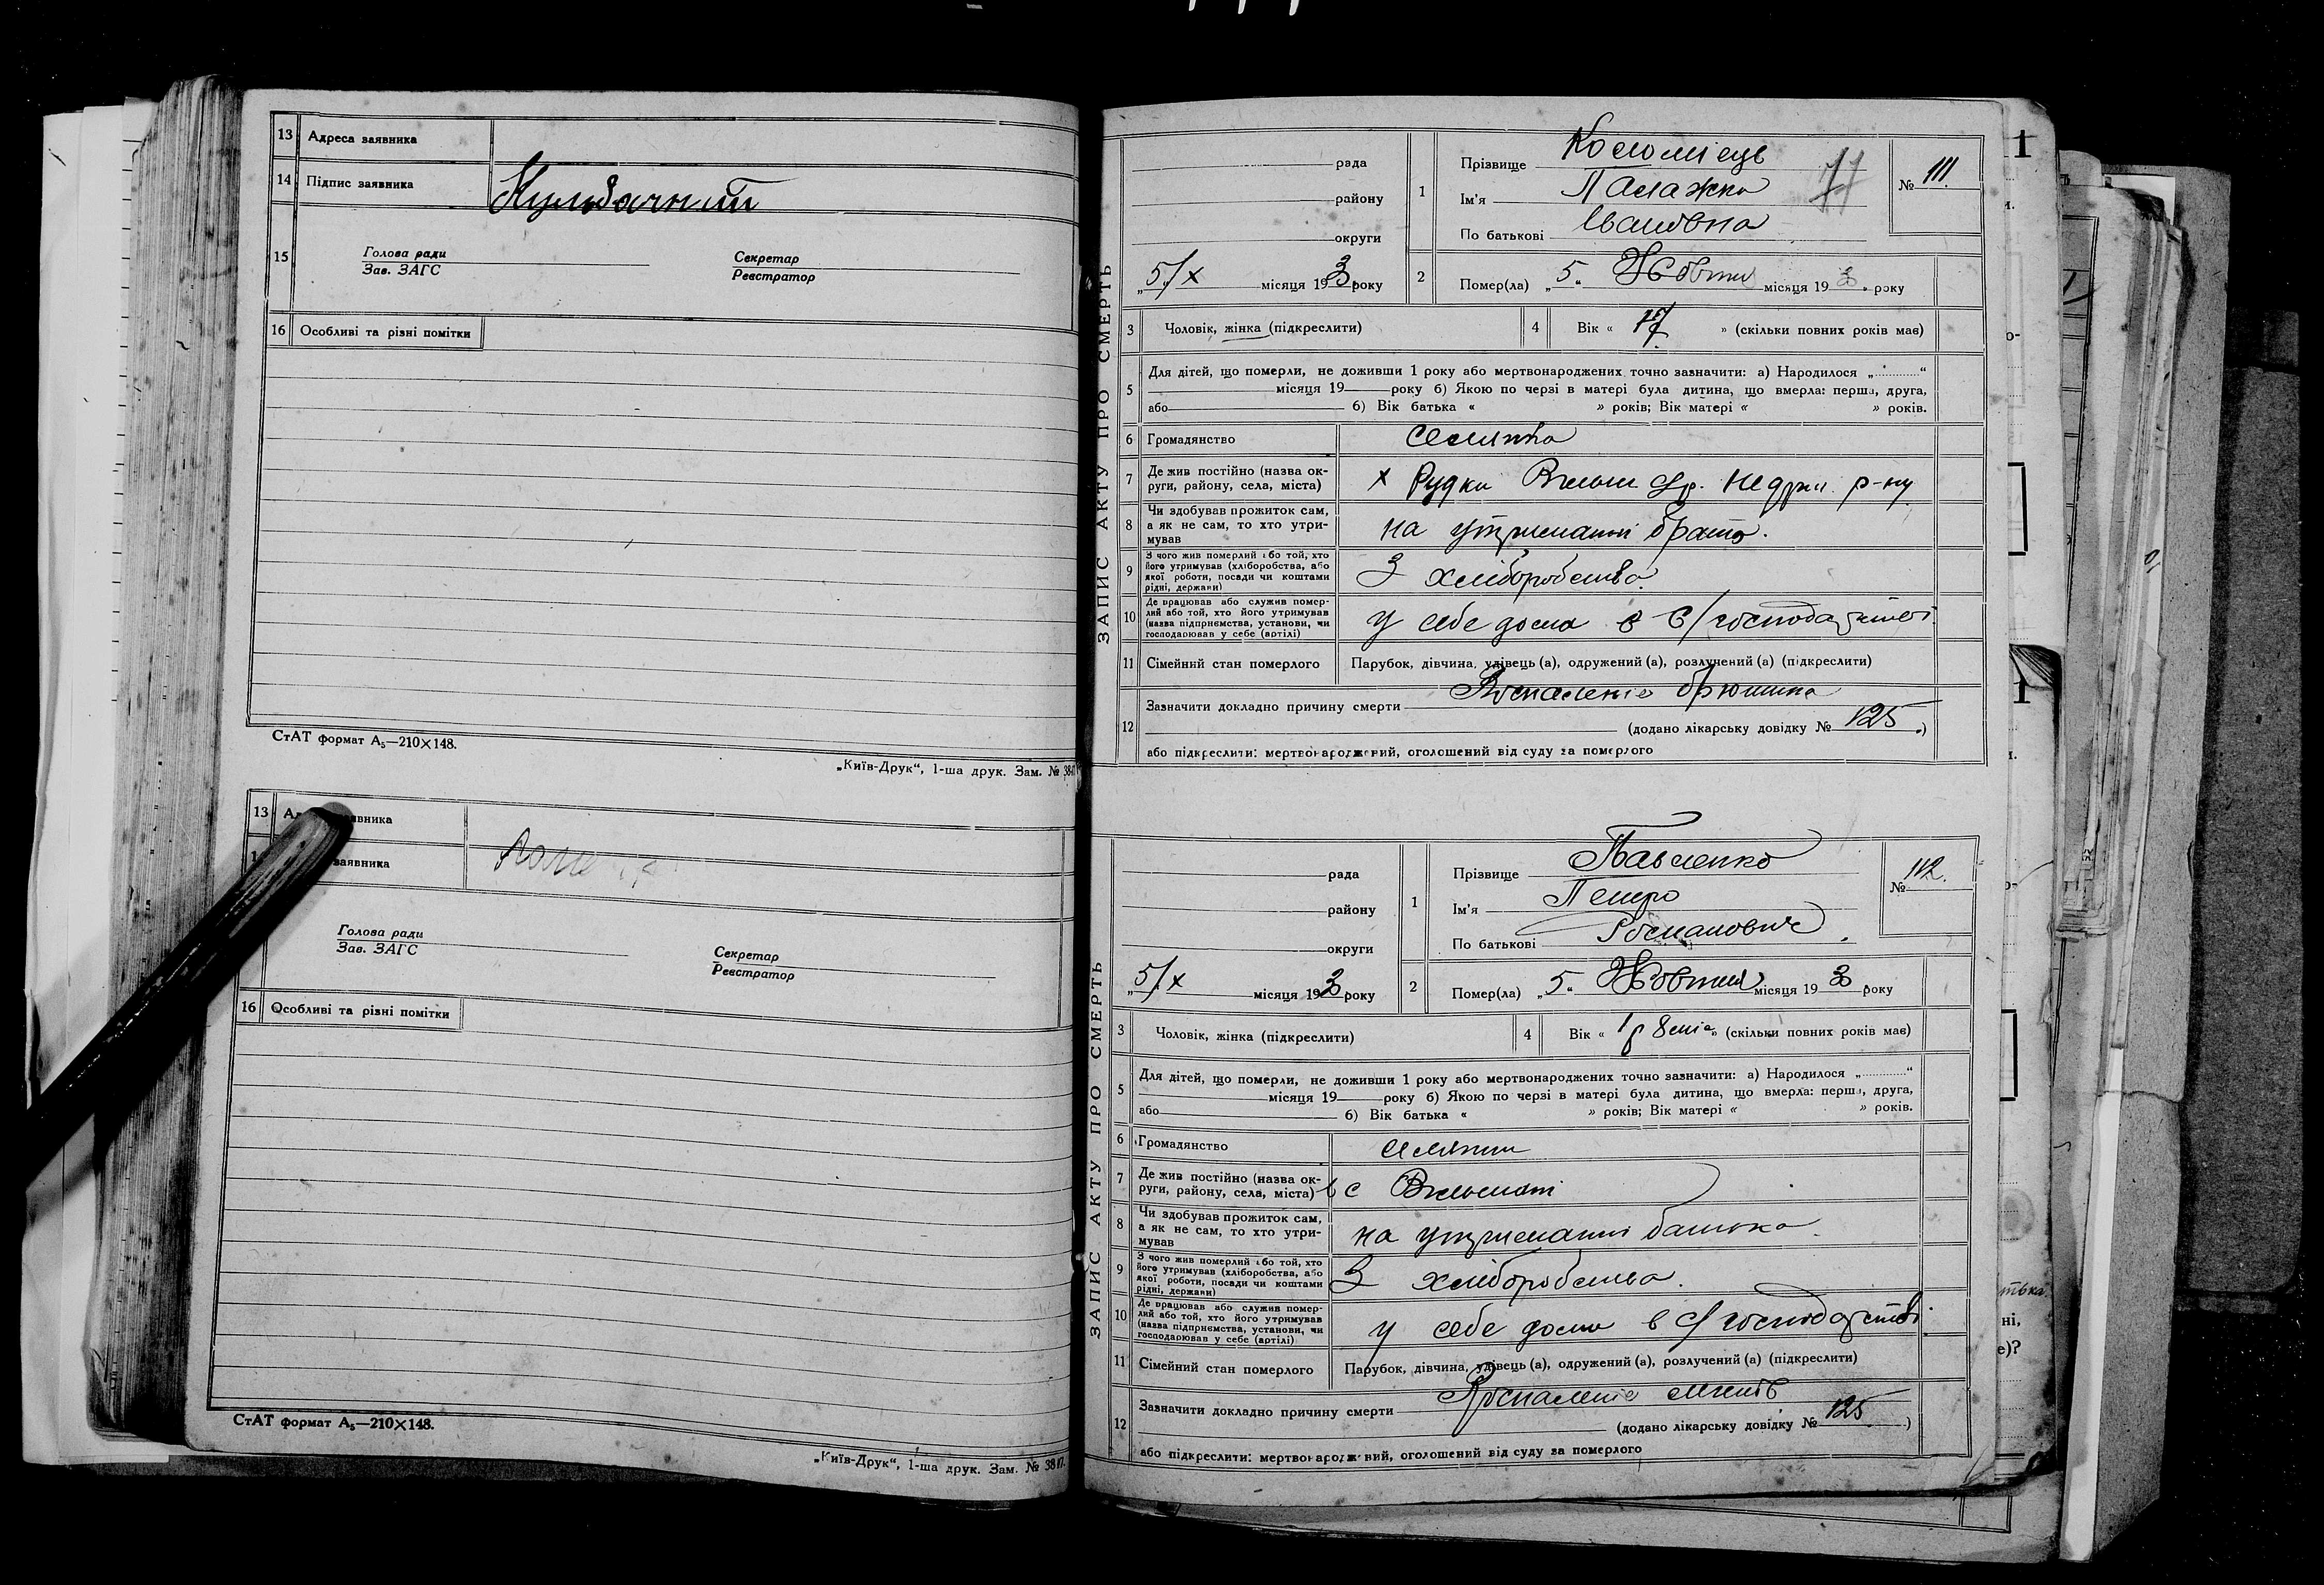 13 Адреса заявника
14 Підпис заявника Кульбачний
15 Голова ради
Зав. ЗАГС
Секретар
Реєстратор
16 Особливі та різні помітки
СтАТ формат А₅—210×148.
„Київ-Друк“, 1-ша друк. Зам. № 3817
13 явника
заявника
Голова ради
Зав. ЗАГС
Секретар
Реєстратор
16 Особливі та різні помітки
СтАТ формат А₅—210×148.
„Київ-Друк“, 1-ша друк. Зам. № 3817.
ЗАПИС АКТУ ПРО СМЕРТЬ
рада
району
округи
„5/х місяця 193 року
1 Прізвище Коломієць
Ім'я Палажка
По батькові Івановна
№ 111.
2 Помер(ла) „5“ Жовтня місяця 193 року
3 Чоловік, жінка (підкреслити)
4 Вік « 17 » (скільки повних років має)
5 Для дітей, що померли, не доживши 1 року або мертвонароджених точно зазначити: а) Народилося „ “
місяця 19 року б) Якою по черзі в матері була дитина, що вмерла: перша, друга,
або б) Вік батька « » років; Вік матері « » років.
6 Громадянство селянка
7 Де жив постійно (назва округи, району, села, міста) х Рудки р-ну
8 Чи здобував прожиток сам, а як не сам, то хто утримував на утриманні брата.
9 З чого жив померлий або той, хто його утримував (хліборобства, або якої роботи, посади чи коштами рідні, держави) З хліборобства
10 Де працював або служив померлий або той, хто його утримував (назва підприємства, установи, чи господарював у себе (артілі) у себе дома в С/господарстві
11 Сімейний стан померлого Парубок, дівчина, удівець (а), одружений (а), розлучений (а) (підкреслити)
12 Зазначити докладно причину смерти Воспаленіє брюшина
(додано лікарську довідку № 125.)
або підкреслити: мертвонароджений, оголошений від суду за померлого
ЗАПИС АКТУ ПРО СМЕРТЬ
рада
району
округи
„5/х місяця 193 року
1 Прізвище Павленко
Ім'я Петро
По батькові Романович
№ 112.
2 Помер(ла) „5“ Жовтня місяця 193 року
3 Чоловік, жінка (підкреслити)
4 Вік « 1р 8 міс » (скільки повних років має)
5 Для дітей, що померли, не доживши 1 року або мертвонароджених точно зазначити: а) Народилося „ “
місяця 19 року б) Якою по черзі в матері була дитина, що вмерла: перша, друга,
або б) Вік батька « » років; Вік матері « » років.
6 Громадянство селянин
7 Де жив постійно (назва округи, району, села, міста) в с Вельматі
8 Чи здобував прожиток сам, а як не сам, то хто утримував на утриманні батька
9 З чого жив померлий або той, хто його утримував (хліборобства, або якої роботи, посади чи коштами рідні, держави) З хліборобства.
10 Де працював або служив померлий або той, хто його утримував (назва підприємства, установи, чи господарював у себе (артілі) у себе дома в С/господарстві
11 Сімейний стан померлого Парубок, дівчина, удівець (а), одружений (а), розлучений (а) (підкреслити)
12 Зазначити докладно причину смерти Воспаленіє
(додано лікарську довідку № 125)
або підкреслити: мертвонароджений, оголошений від суду за померлого